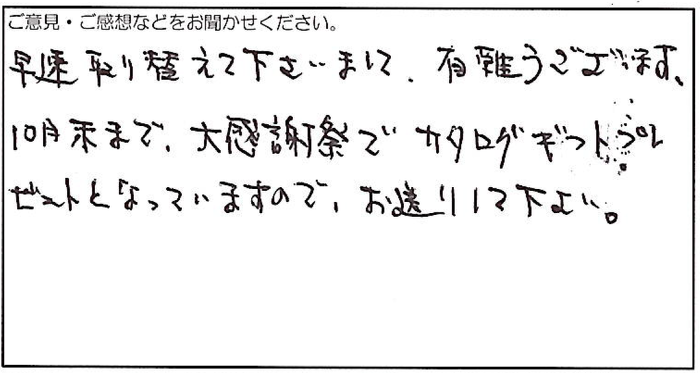 ご意見・ご感想などをお聞かせください。
早速取り替えて下さいまして、有難うございます、
10月末まで、大感謝祭でカタログギフトプレ
ゼントとなっていますので、お送りして下さい。